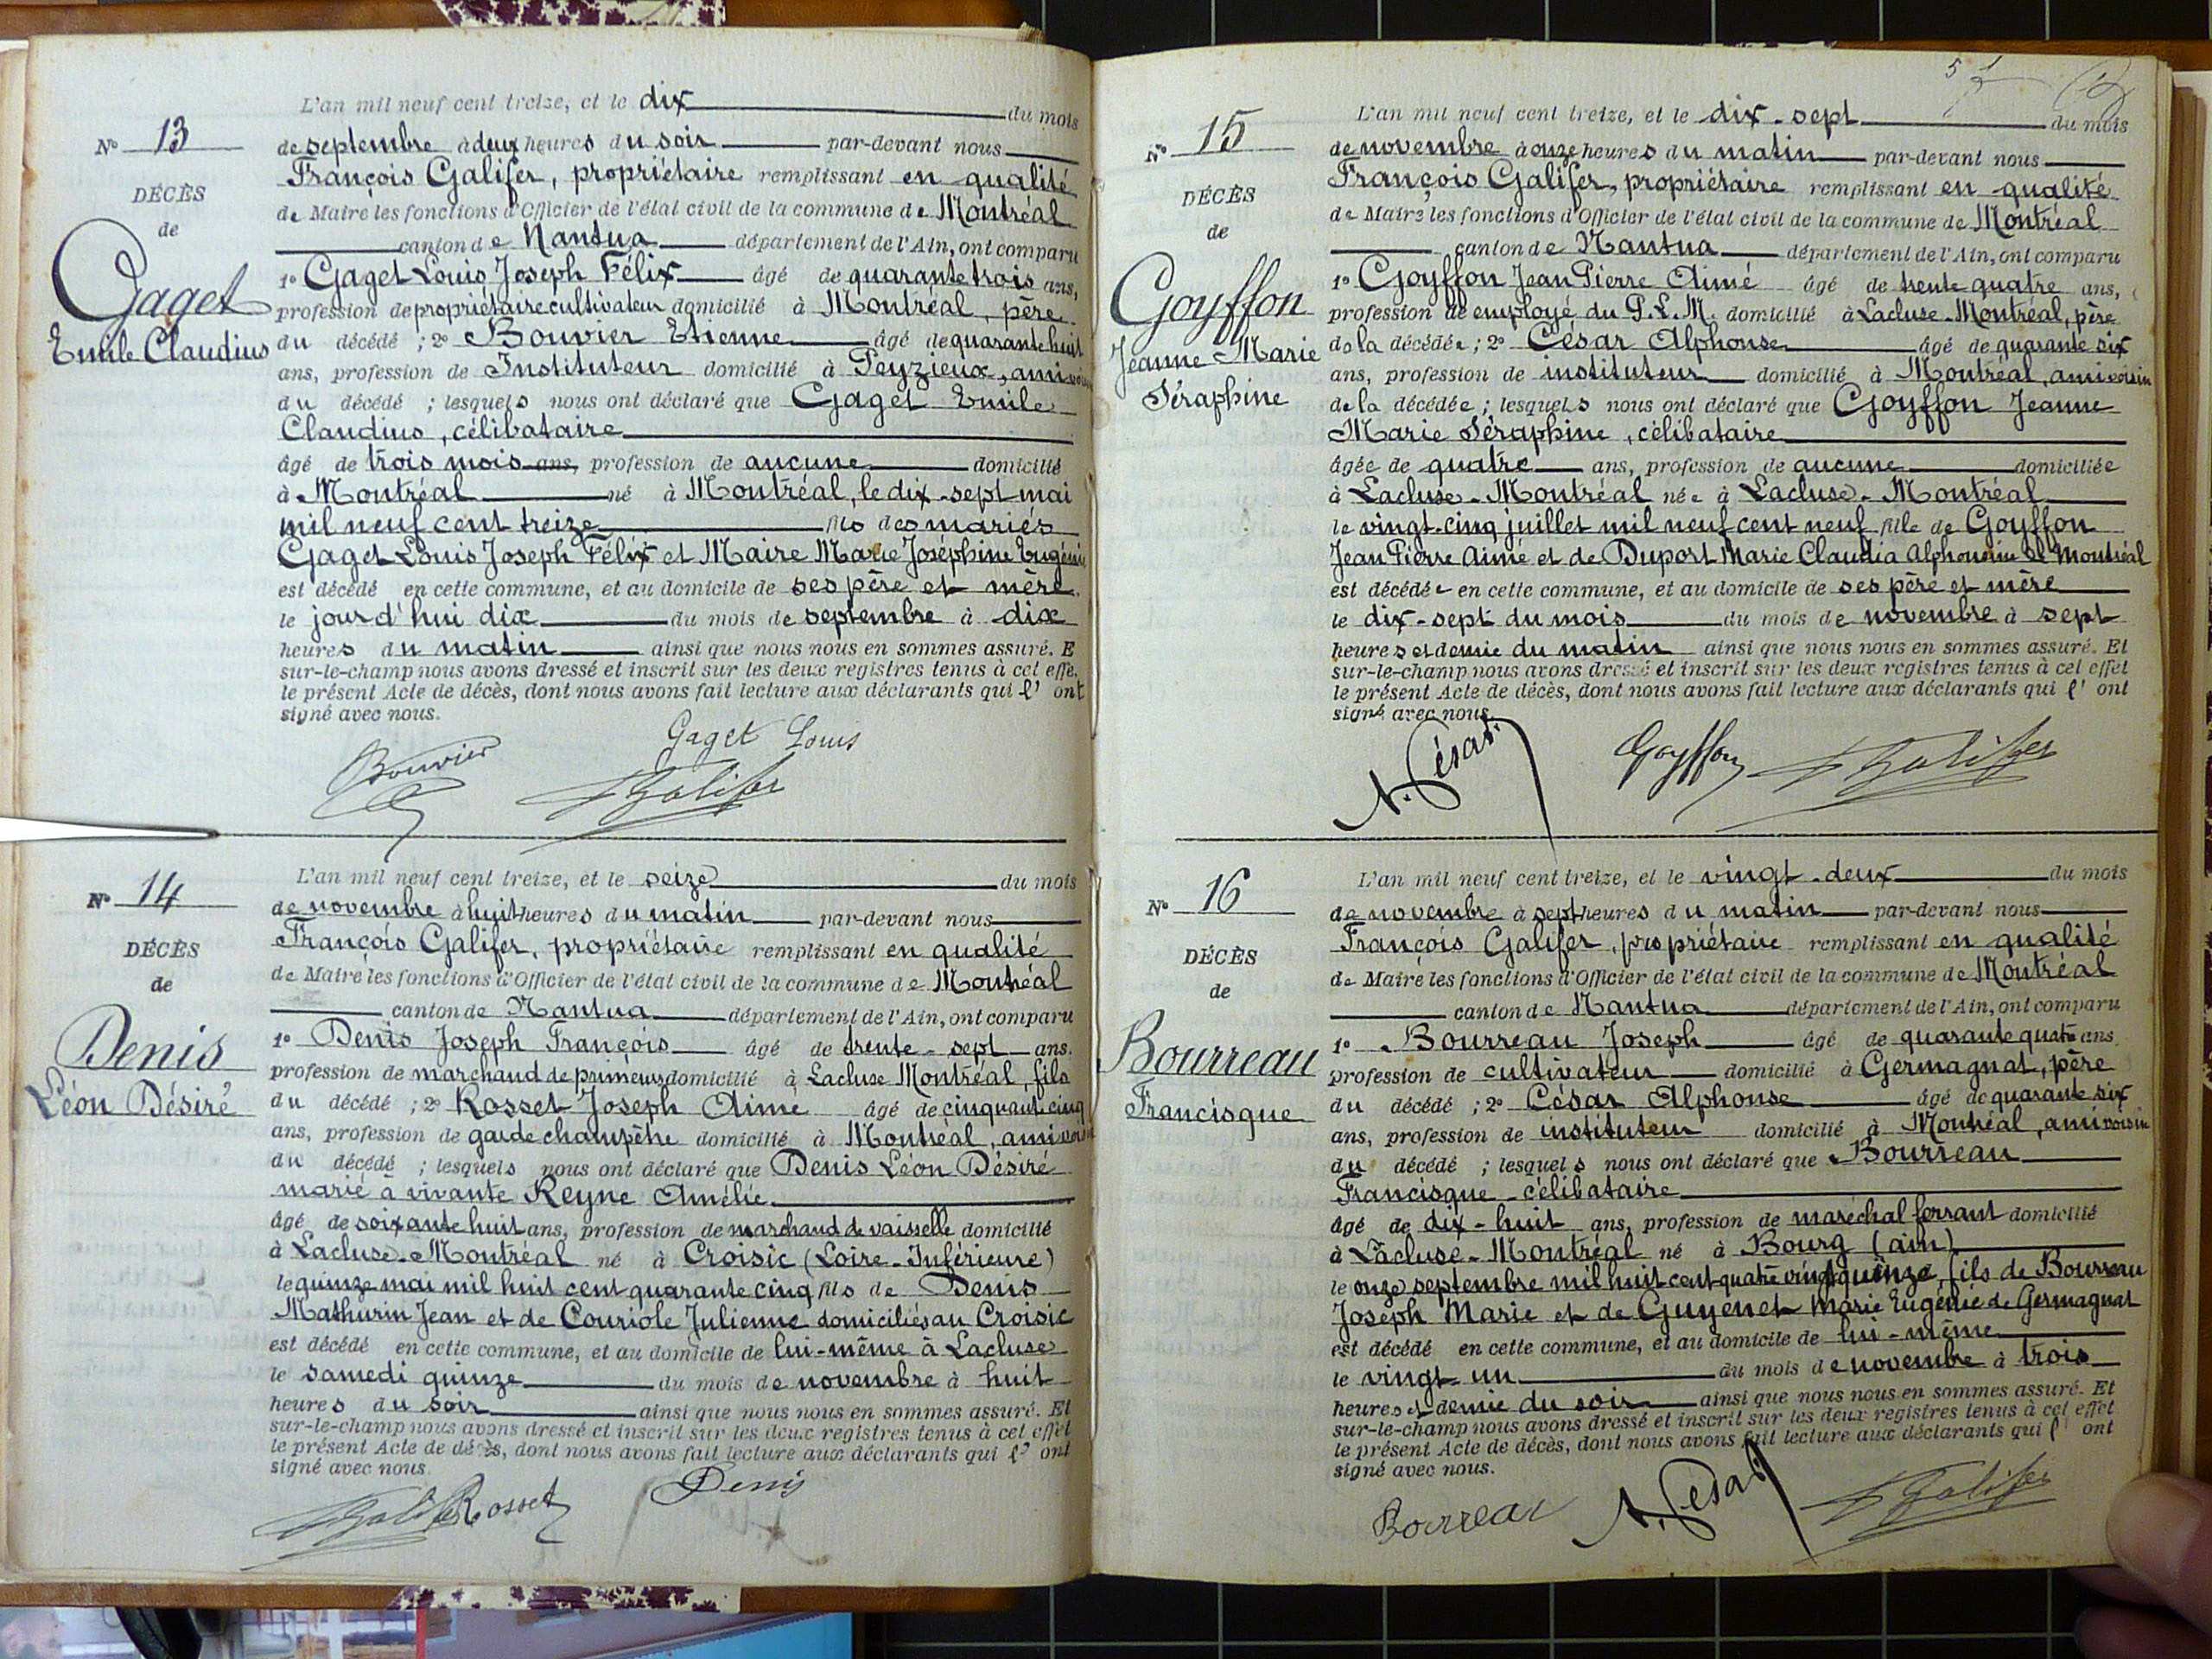 L'an mil neuf cent treize, et le dix du mois
N° 13
de septembre à deux heures du soir par-devant nous
François Galifer, propriétaire remplissant en qualité
DÉCÈS
de Maire les fonctions d'Officier de l'état civil de la commune de Montréal
de
canton de Nantua département de l'Ain, ont comparu
1° Gaget Louis Joseph Félix âgé de quarante trois ans,
Gaget
profession de propriétaire cultivateur domicilié à Montréal, père
Emile Claudius
du décédé ; 2° Bouvier Etienne âgé de quarante huit
ans, profession de Instituteur domicilié à Peyzieux, ami voisin
du décédé ; lesquels nous ont déclaré que Gaget Emile
Claudius, célibataire
âgé de trois mois ans, profession de aucune domicilié
à Montréal né à Montréal, le dix-sept mai
mil neuf cent treize fils des mariés
Gaget Louis Joseph Félix et Maire Marie Joséphine Eugénie
est décédé en cette commune, et au domicile de ses père et mère
le jourd'hui dix du mois de septembre à dix
heures du matin ainsi que nous nous en sommes assuré. E
sur-le-champ nous avons dressé et inscrit sur les deux registres tenus à cet effe
le présent Acte de décès, dont nous avons fait lecture aux déclarants qui l'ont
signé avec nous.
Gaget Louis
Bouvier
Galifer
L'an mil neuf cent treize, et le seize du mois
N° 14
de novembre à huit heures du matin par-devant nous
François Galifer, propriétaire remplissant en qualité
DÉCÈS
de Maire les fonctions d'Officier de l'état civil de la commune de Montréal
de
canton de Nantua département de l'Ain, ont comparu
1° Denis Joseph François âgé de trente-sept ans.
Denis
profession de marchand de primeurs domicilié à Lacluse Montréal, fils
Léon Désiré
du décédé ; 2° Rosset Joseph Aimé âgé de cinquante cinq
ans, profession de garde champêtre domicilié à Montréal, ami voisin
du décédé ; lesquels nous ont déclaré que Denis Léon Désiré
marié à vivante Reyne Amélie
âgé de soixante huit ans, profession de marchand de vaisselle domicilié
à Lacluse-Montréal né à Croisic (Loire-Inférieure)
le quinze mai mil huit cent quarante cinq fils de Denis
Mathurin Jean et de Couriole Julienne domiciliés au Croisic
est décédé en cette commune, et au domicile de lui-même à Lacluse
le samedi quinze du mois de novembre à huit
heures du soir ainsi que nous nous en sommes assuré. Et
sur-le-champ nous avons dressé et inscrit sur les deux registres tenus à cet effet
le présent Acte de décès, dont nous avons fait lecture aux déclarants qui l'ont
signé avec nous.
Denis
Galifer Rosset
L'an mil neuf cent treize, et le dix-sept du mois
N° 15
de novembre à onze heures du matin par-devant nous
François Galifer, propriétaire remplissant en qualité
DÉCÈS
de Maire les fonctions d'Officier de l'état civil de la commune de Montréal
de
canton de Nantua département de l'Ain, ont comparu
1° Goyffon Jean Pierre Aimé âgé de trente quatre ans,
Goyffon
profession de employé du P.L.M. domicilié à Lacluse-Montréal, père
Jeanne-Marie
de la décédée ; 2° César Alphonse âgé de quarante six
ans, profession de instituteur domicilié à Montréal, ami voisin
Séraphine
de la décédée ; lesquels nous ont déclaré que Goyffon Jeanne
Marie Séraphine, célibataire
âgée de quatre ans, profession de aucune domiciliée
à Lacluse-Montréal née à Lacluse-Montréal
le vingt-cinq juillet mil neuf cent neuf fille de Goyffon
Jean Pierre Aimé et de Duport Marie Claudia Alphonsine de Montréal
est décédée en cette commune, et au domicile de ses père et mère
le dix-sept du mois du mois de novembre à sept
heures et demie du matin ainsi que nous nous en sommes assuré. Et
sur-le-champ nous avons dressé et inscrit sur les deux registres tenus à cet effet
le présent Acte de décès, dont nous avons fait lecture aux déclarants qui l'ont
signé avec nous.
A. César
Goyffon Galifer
L'an mil neuf cent treize, et le vingt-deux du mois
N° 16
de novembre à sept heures du matin par-devant nous
François Galifer, propriétaire remplissant en qualité
DÉCÈS
de Maire les fonctions d'Officier de l'état civil de la commune de Montréal
de
canton de Nantua département de l'Ain, ont comparu
1° Bourreau Joseph âgé de quarante quatre ans
Bourreau
profession de cultivateur domicilié à Germagnat, père
Francisque
du décédé ; 2° César Alphonse âgé de quarante six
ans, profession de instituteur domicilié à Montréal, ami voisin
du décédé ; lesquels nous ont déclaré que Bourreau
Francisque célibataire
âgé de dix-huit ans, profession de maréchal ferrant domicilié
à Lacluse-Montréal né à Bourg (ain)
le onze septembre mil huit cent quatre vingt quinze, fils de Bourreau
Joseph Marie et de Guyenet Marie Eugénie de Germagnat
est décédé en cette commune, et au domicile de lui-même
le vingt-un du mois de novembre à trois
heures et demie du soir ainsi que nous nous en sommes assuré. Et
sur-le-champ nous avons dressé et inscrit sur les deux registres tenus à cet effet
le présent Acte de décès, dont nous avons fait lecture aux déclarants qui l'ont
signé avec nous.
Bourreau A. César Galifer